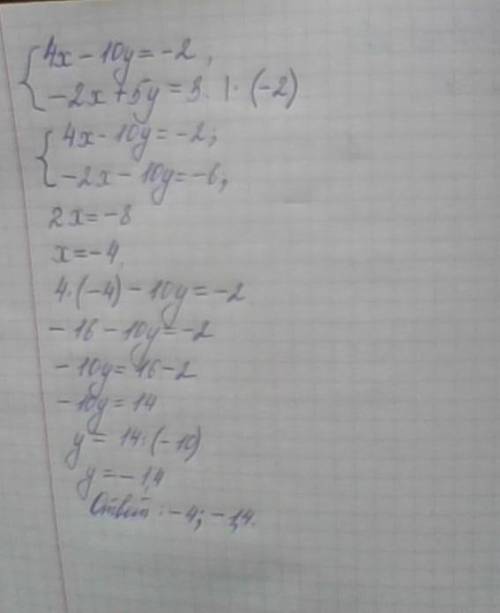 { 4x - 10y = -2,
{ -2x + 5y = 3. | · (-2)
{ 4x - 10y = -2;
{ -2x - 10y = -6;
2x = -8
x = -4.
4·(-4) - 10y = -2
-16 - 10y = -2
-10y = 16 - 2
-10y = 14
y = 14:(-10)
y = -1,4
Ответ: -4; -1,4.